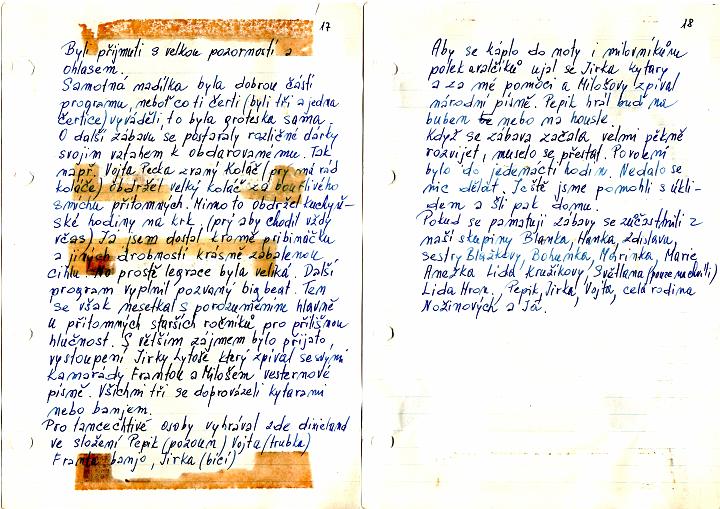 17
Byli přijmuti s velkou pozorností a
ohlasem.
Samotná nadílka byla dobrou částí
programu, neboť co ti čerti (byli tři a jedna
čertice) vyváděli, to byla groteska sama.
O další zábavu se postaraly različné dárky
svojim vztahem k obdarovanému. Tak
např. Vojta Pecka zvaný Koláč (prý má rád
koláče) obdržel velký koláč za bouřlivého
smíchu přítomných. Mimo to obdržel kuchyň-
ské hodiny na krk, (prý aby chodil vždy
včas) Já jsem dostal kromě pribináčku
a jiných drobností krásně zabalenou
cihlu. No prostě legrace byla veliká. Další
program vyplnil pozvaný big beat. Ten
se však nesetkal s porozuměním hlavně
u přítomných starších ročníků pro přílišnou
hlučnost. S větším zájmem bylo přijato,
vystoupení Jirky Lytoše který zpíval se svými
kamarády Frantou a Milošem vesternové
písně. Všichni tři se doprovázeli kytarami
nebo banjem.
Pro tancechtivé osoby vyhrával zde dixieland
ve složení Pepik (pozoun) Vojta (trubka)
Franta banjo, Jirka (bicí)
18
Aby se káplo do noty i milovníkům
polek a valčíků ujal se Jirka kytary
a za mé pomoci a Milošovy zpíval
národní písně. Pepik hrál buď na
buben nebo na housle.
Když se zábava začala velmi pěkně
rozvijet, muselo se přestat. Povolení
bylo do jedenácti hodin. Nedalo se
nic dělat. Ještě jsme pomohli s úkli-
dem a šli pak domu.
Pokud se pamatuji zábavy se zúčastnili z
naší skupiny Blanka, Hanka, Zdislava,
sestry Blažkovy, Bohunka, Mařinka, Marie
Anežka Lida Kružikovy, Světlana (pouze na chvíli)
Lida Hron, Pepik, Jirka, Vojta, celá rodina
Nožinových a Já.